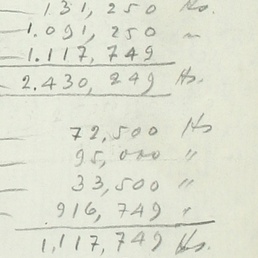 131,250 Hs.
1.091,250 "
1.117,749
2.430,249 Hs.
72,500 Hs
95,000 "
33,500 "
916,749 "
1,117,749 Hs.